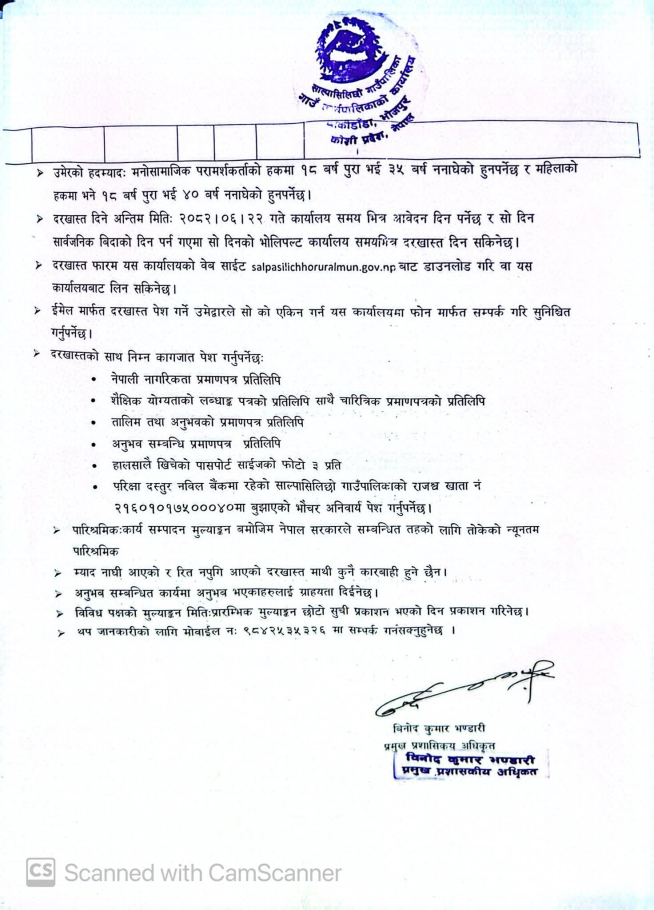 साल्पासिलिछो गाउँपालिका
गाउँ कार्यपालिकाको कार्यालय
भोजपुर
कोशी प्रदेश, नेपाल
➤ उमेरको हदम्यादः मनोसामाजिक परामर्शकर्ताको हकमा १८ बर्ष पुरा भई ३५ बर्ष ननाघेको हुनपर्नेछ र महिलाको
हकमा भने १८ बर्ष पुरा भई ४० बर्ष ननाघेको हुनपर्नेछ।
➤ दरखास्त दिने अन्तिम मितिः २०८२।०६।२२ गते कार्यालय समय भित्र आवेदन दिन पर्नेछ र सो दिन
सार्वजनिक बिदाको दिन पर्न गएमा सो दिनको भोलिपल्ट कार्यालय समयभित्र दरखास्त दिन सकिनेछ।
➤ दरखास्त फारम यस कार्यालयको वेब साईट salpasilichhoruralmun.gov.np बाट डाउनलोड गरि वा यस
कार्यालयबाट लिन सकिनेछ।
➤ ईमेल मार्फत दरखास्त पेश गर्ने उमेद्वारले सो को एकिन गर्न यस कार्यालयमा फोन मार्फत सम्पर्क गरि सुनिश्चित
गर्नुपर्नेछ।
➤ दरखास्तको साथ निम्न कागजात पेश गर्नुपर्नेछः
• नेपाली नागरिकता प्रमाणपत्र प्रतिलिपि
• शैक्षिक योग्यताको लब्धाङ्क पत्रको प्रतिलिपि साथै चारित्रिक प्रमाणपत्रको प्रतिलिपि
• तालिम तथा अनुभवको प्रमाणपत्र प्रतिलिपि
• अनुभव सम्बन्धि प्रमाणपत्र प्रतिलिपि
• हालसालै खिचेको पासपोर्ट साईजको फोटो ३ प्रति
• परिक्षा दस्तुर नविल बैंकमा रहेको साल्पासिलिछो गाउँपालिकाको राजश्व खाता नं
२१६०१०१७५०००४०मा बुझाएको भौचर अनिवार्य पेश गर्नुपर्नेछ।
➤ पारिश्रमिकःकार्य सम्पादन मुल्याङ्कन बमोजिम नेपाल सरकारले सम्बन्धित तहको लागि तोकेको न्यूनतम
पारिश्रमिक
➤ म्याद नाघी आएको र रित नपुगि आएको दरखास्त माथी कुनै कारबाही हुने छैन।
➤ अनुभव सम्बन्धित कार्यमा अनुभव भएकाहरुलाई ग्राहयता दिईनेछ।
➤ विविध पक्षको मुल्याङ्कन मितिःप्रारम्भिक मुल्याङ्कन छोटो सुची प्रकाशन भएको दिन प्रकाशन गरिनेछ।
➤ थप जानकारीको लागि मोवाईल नः ९८४२५३५३२६ मा सम्पर्क गर्नसक्नुहुनेछ ।
बिनोद कुमार भण्डारी
प्रमुख प्रशासिकय अधिकृत
विनोद कुमार भण्डारी
प्रमुख प्रशासकीय अधिकृत
CS Scanned with CamScanner